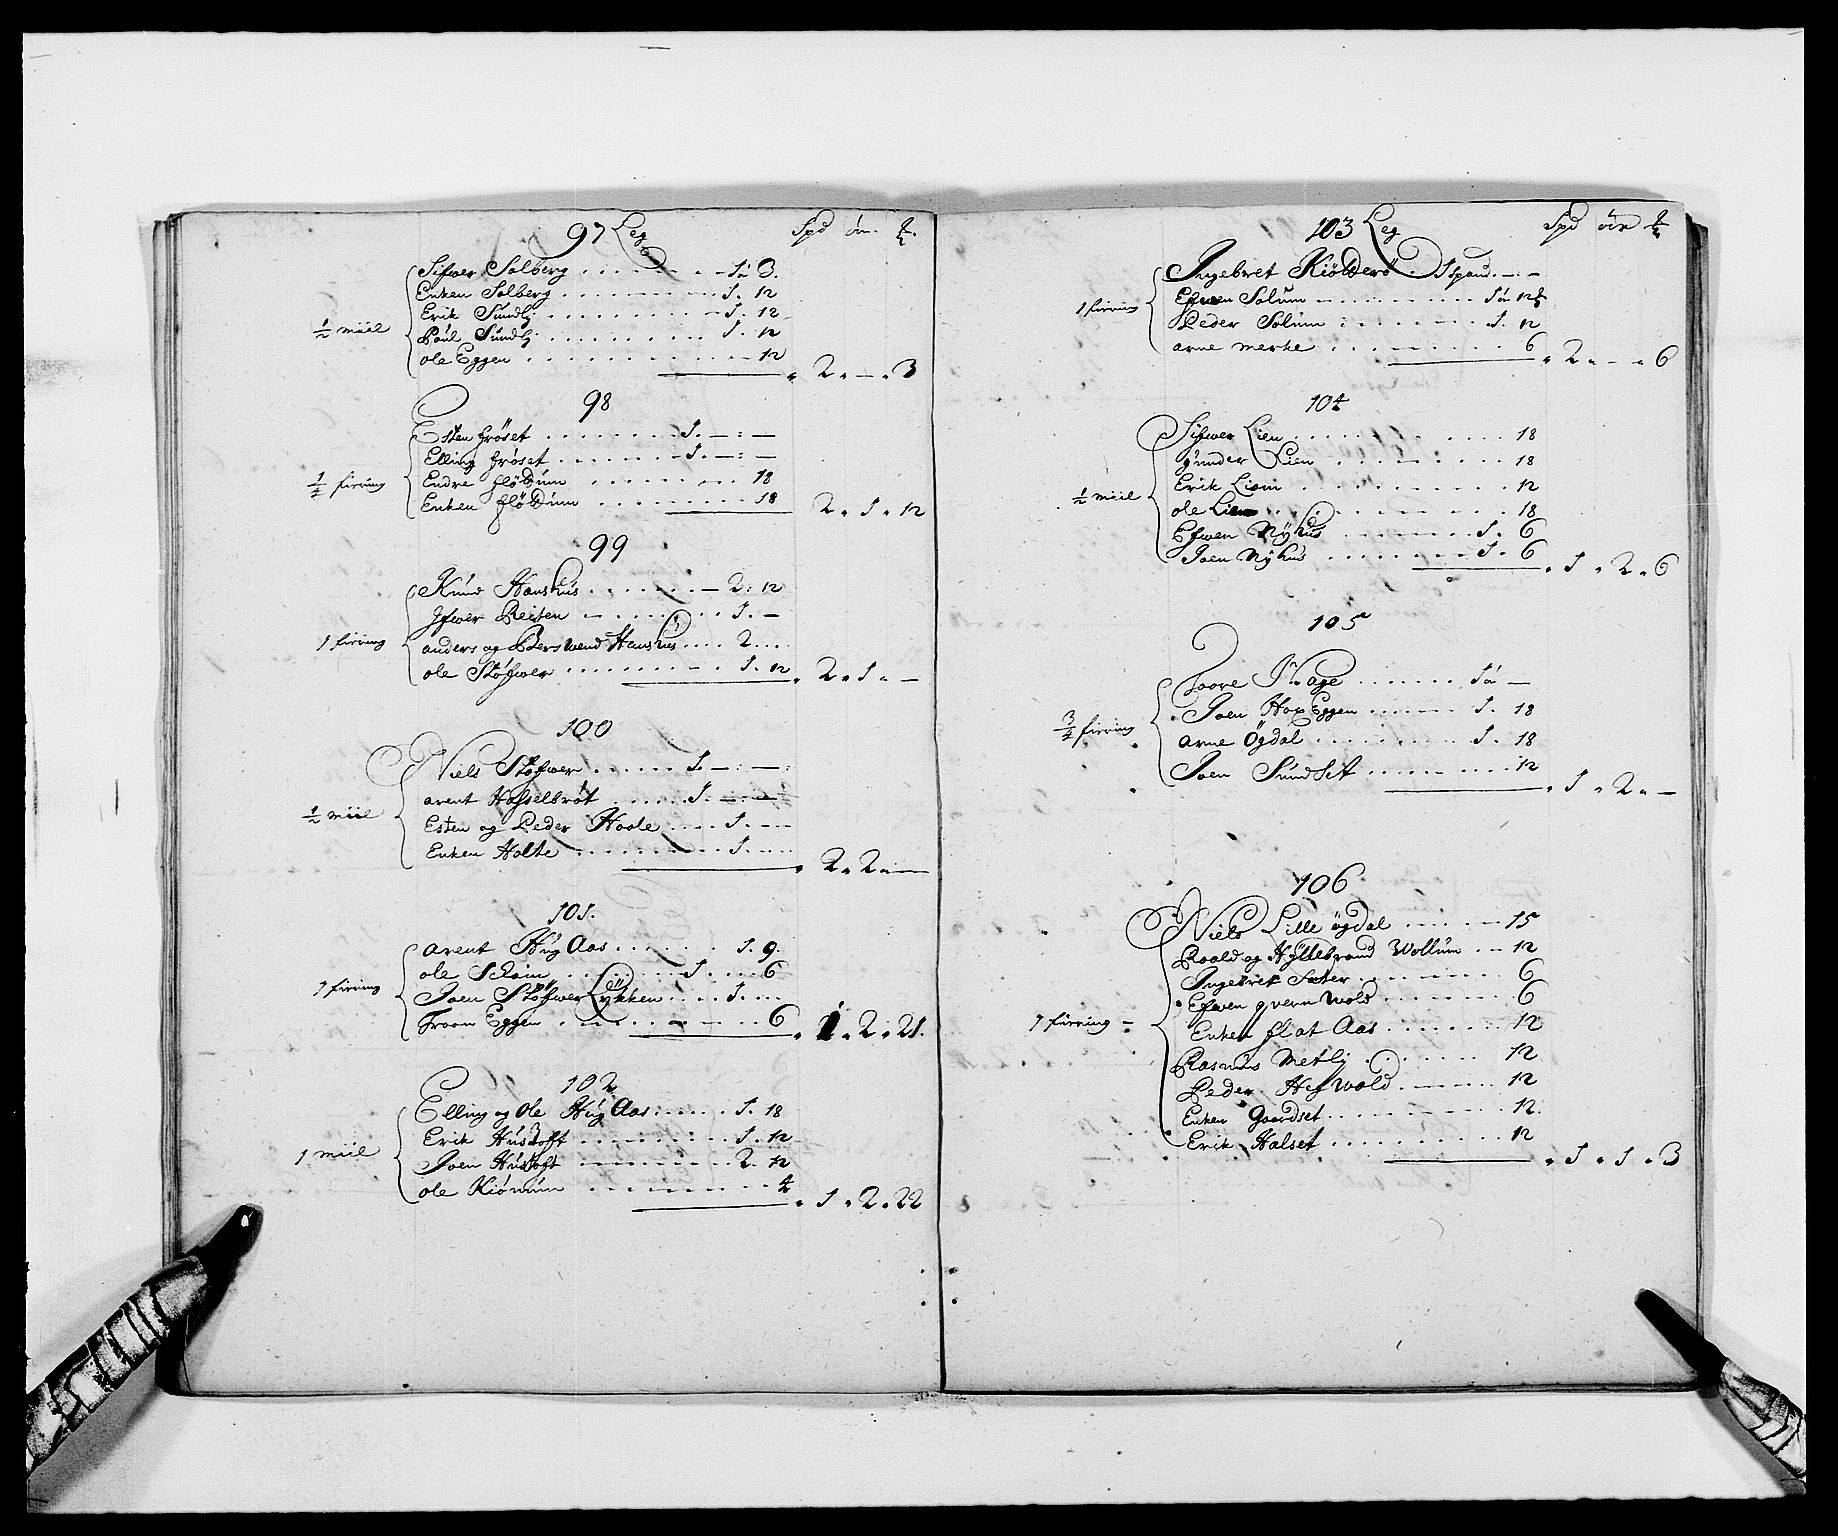 97 Leg Spd ör
Sifwer Solberg 1ö 3
Enken Solberg 1. 12
Erik Sundlj 1. 12
½ miil
Poul Sundlj 1. 12
ole Eggen 12
2. — . 3
98
Esten fröset 1. — : —
Elling fröset 1. — : —
½ firring
Endre flödum 18
Enken flödum 18
2. 1. 12
99
Knud Hanshus 2: 12
Ifwer Reiten 1. —
1 firring
anders og Berswend Hanshus 2
ole Stöfwer 1. 12
2. 1. —
100
Niels Stöfwer 1. — : —
arent Hasselbröt 1. — —
½ miil
Esten og Peder Hoole 1. —
Enken Holte 1. —
2. 2. —
101.
arent Hug Aas 1. 9.
ole Schöin 1. 6
1 firring
Joen Stöfwer Lÿkken 1.
Troen Eggen 6
1. 2. 21.
102
Elling og Ole Hug Aas 1. 18
Erik Hustoft 1. 12
1 miil
Joen Hustoft 2. 12
ole Kiönum
1. 2. 22
103 Leg Spd ör
Ingebret Kiölderö 1 spand. — : —
1 firring
Efwen Solum 1ö 12
Peder Solum 1. 12
arne merke 6
2. — . 6
104
Sifwer Lien 18
gunder Lien 18
Erik Lien 12
½ miil
ole Lien 18
Efwen Nyhus 1. 6
Joen Nyhus 1. 6
1. 2. 6
105
Toore Hage 1ö —
Joen Hox Eggen 1. 18
¾ firring
arne Ögdal 1. 18
Joen Sundset 12
1. 2. —
106
Niels Lille ögdal 15
Roald og Hyllebrand Wollum 12
Ingebret Sæter 6
Efwen qvern Wold 6
1 firring
Enken flat Aas 12
Rasmus Metlj 12
Peder Hefwold 12
Enken Gaardset 12.
Erik Halset 12
1. 1. 3